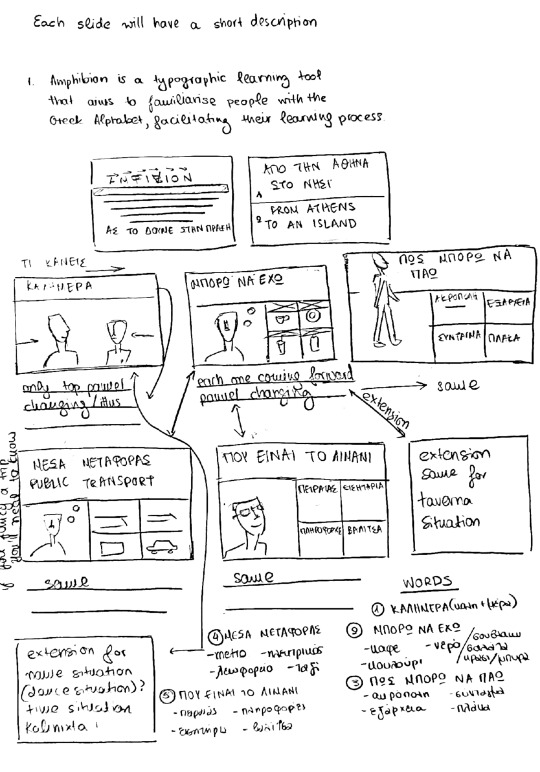 Each slide will have a short description
1. Amphibion is a typographic learning tool
that aims to familiarise people with the
Greek Alphabet, facilitating their learning process.
ΑΣ ΤΟ ΔΟΥΜΕ ΣΤΗΝ ΠΡΑΞΗ
1 ΑΠΟ ΤΗΝ ΑΘΗΝΑ
ΣΤΟ ΝΗΣΙ
2 FROM ATHENS
TO AN ISLAND
ΤΙ ΚΑΝΕΙΣ
ΚΑΛΗΜΕΡΑ
ΜΠΟΡΩ ΝΑ ΕΧΩ
ΠΩΣ ΜΠΟΡΩ ΝΑ
ΠΑΩ
ΑΚΡΟΠΟΛΗ
ΕΞΑΡΧΕΙΑ
ΣΥΝΤΑΓΜΑ
ΠΛΑΚΑ
only top pannel
changing/illus
each one coming forward
pannel changing
same
extension
ΜΕΣΑ ΜΕΤΑΦΟΡΑΣ
PUBLIC TRANSPORT
ΠΟΥ ΕΙΝΑΙ ΤΟ ΛΙΜΑΝΙ
ΠΕΙΡΑΙΑΣ
ΕΙΣΗΤΗΡΙΑ
ΠΛΗΡΟΦΟΡΙΕΣ
ΒΑΛΙΤΣΑ
extension
same for
taverna
situation
if you fancy a trip
you'll need to know
same
same
extension for
same situation
(dance situation)?
time situation
WORDS
① ΚΑΛΗΜΕΡΑ (καλη + μερα)
② ΜΠΟΡΩ ΝΑ ΕΧΩ
- καφε - νερο / σουβλακι
- κουλουρι / σαλατα
κρασι / μπυρα
③ ΠΩΣ ΜΠΟΡΩ ΝΑ ΠΑΩ
- ακροπολη - συνταγμα
- εξαρχεια - πλακα
④ ΜΕΣΑ ΜΕΤΑΦΟΡΑΣ
- μετρο - ηλεκτρικος
- λεωφορειο - ταξι
⑤ ΠΟΥ ΕΙΝΑΙ ΤΟ ΛΙΜΑΝΙ
- πληροφοριες
- βαλιτσα